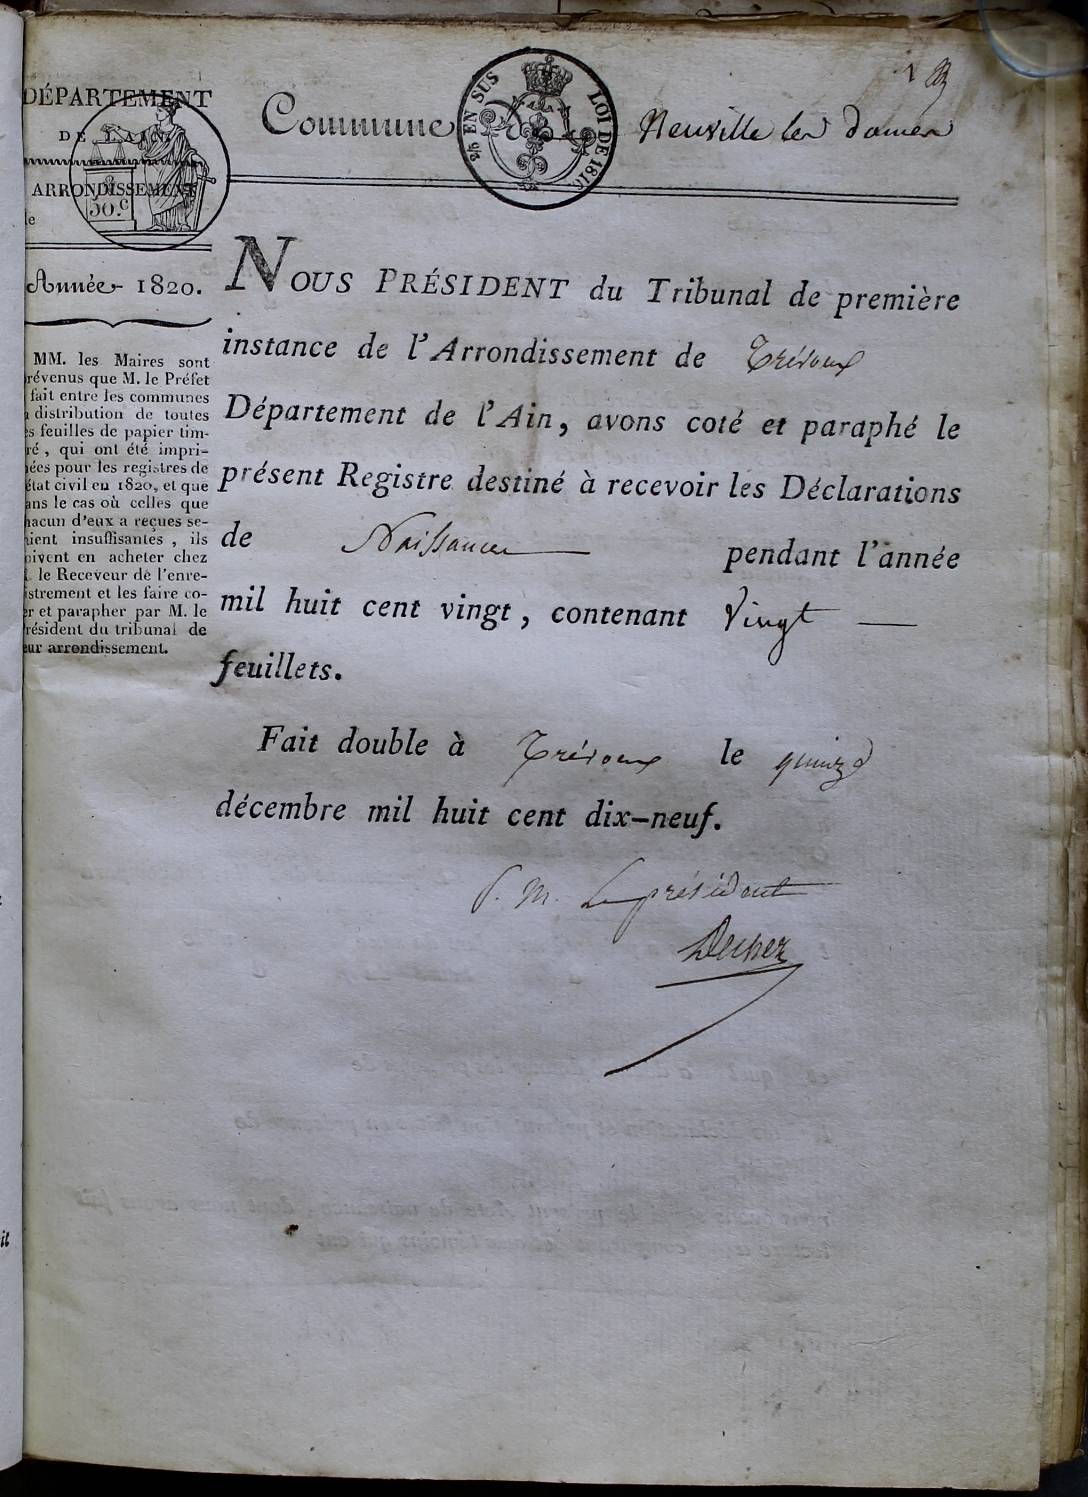 1
DÉPARTEMENT
DE
ARRONDISSEMENT
50.c
Commune
2/5 EN SUS
LOI DE 1816
Neuville les dames
Année 1820.
MM. les Maires sont
révenus que M. le Préfet
fait entre les communes
distribution de toutes
es feuilles de papier tim-
ré, qui ont été impri-
ées pour les registres de
état civil en 1820, et que
ans le cas où celles que
hacun d'eux a reçues se-
aient insuffisantes, ils
oivent en acheter chez
le Receveur de l'enre-
istrement et les faire co-
er et parapher par M. le
résident du tribunal de
eur arrondissement.
NOUS PRÉSIDENT du Tribunal de première
instance de l'Arrondissement de Trévoux
Département de l'Ain, avons coté et paraphé le
présent Registre destiné à recevoir les Déclarations
de Naissances pendant l'année
mil huit cent vingt, contenant Vingt —
feuillets.
Fait double à Trévoux le quinze
décembre mil huit cent dix-neuf.
P. M. Le président